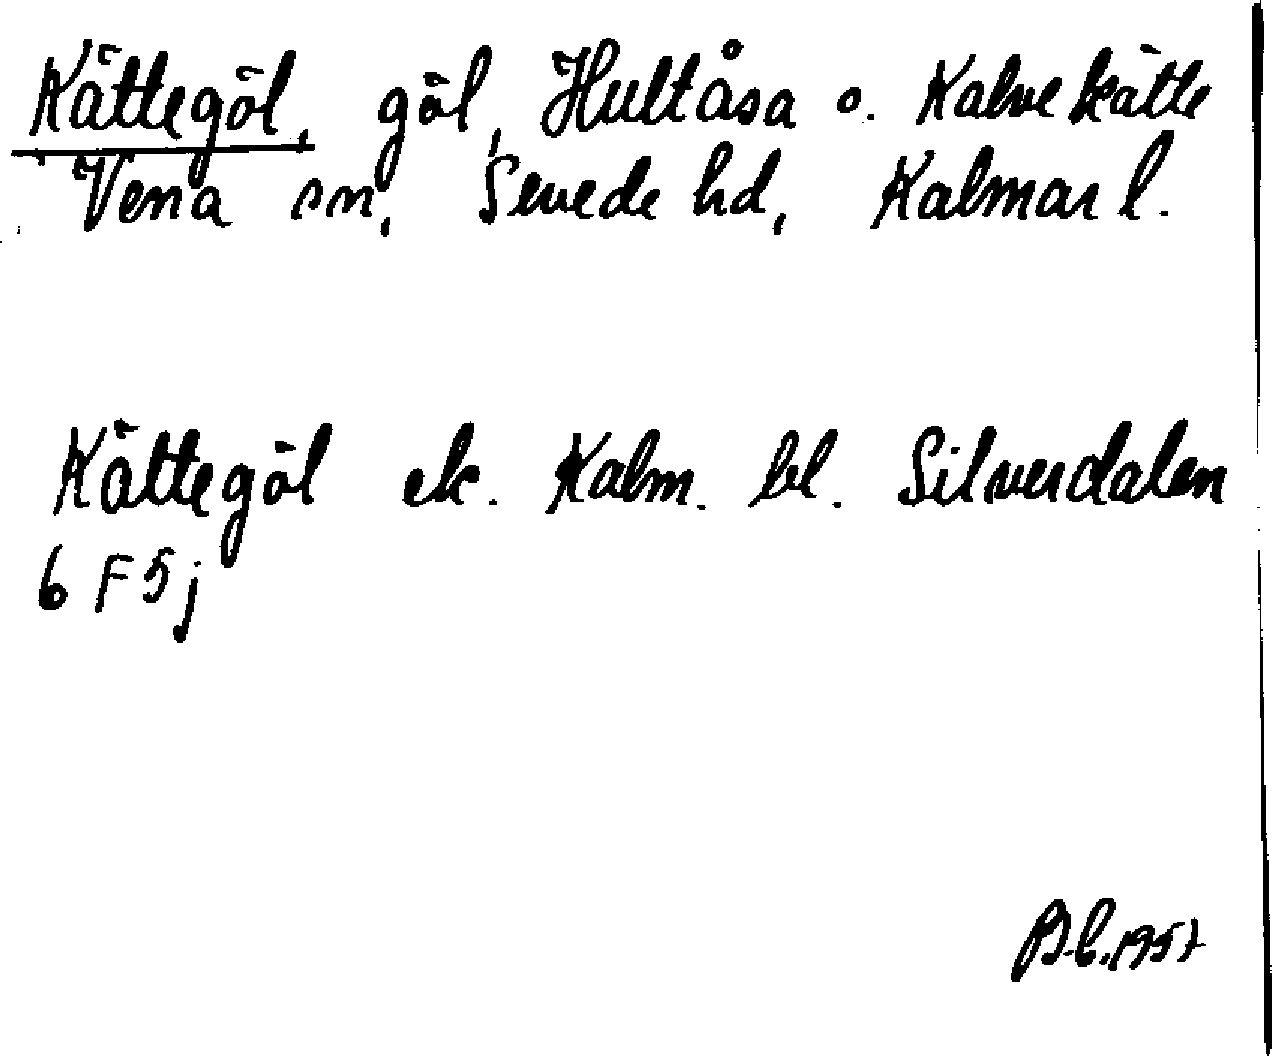 Kättegöl, göl, Hultåsa o. Kalvekätte
Vena sn, Sevede hd, Kalmar l.
Kättegöl ek. Kalm. bl. Silverdalen
6 F 5 j
1957